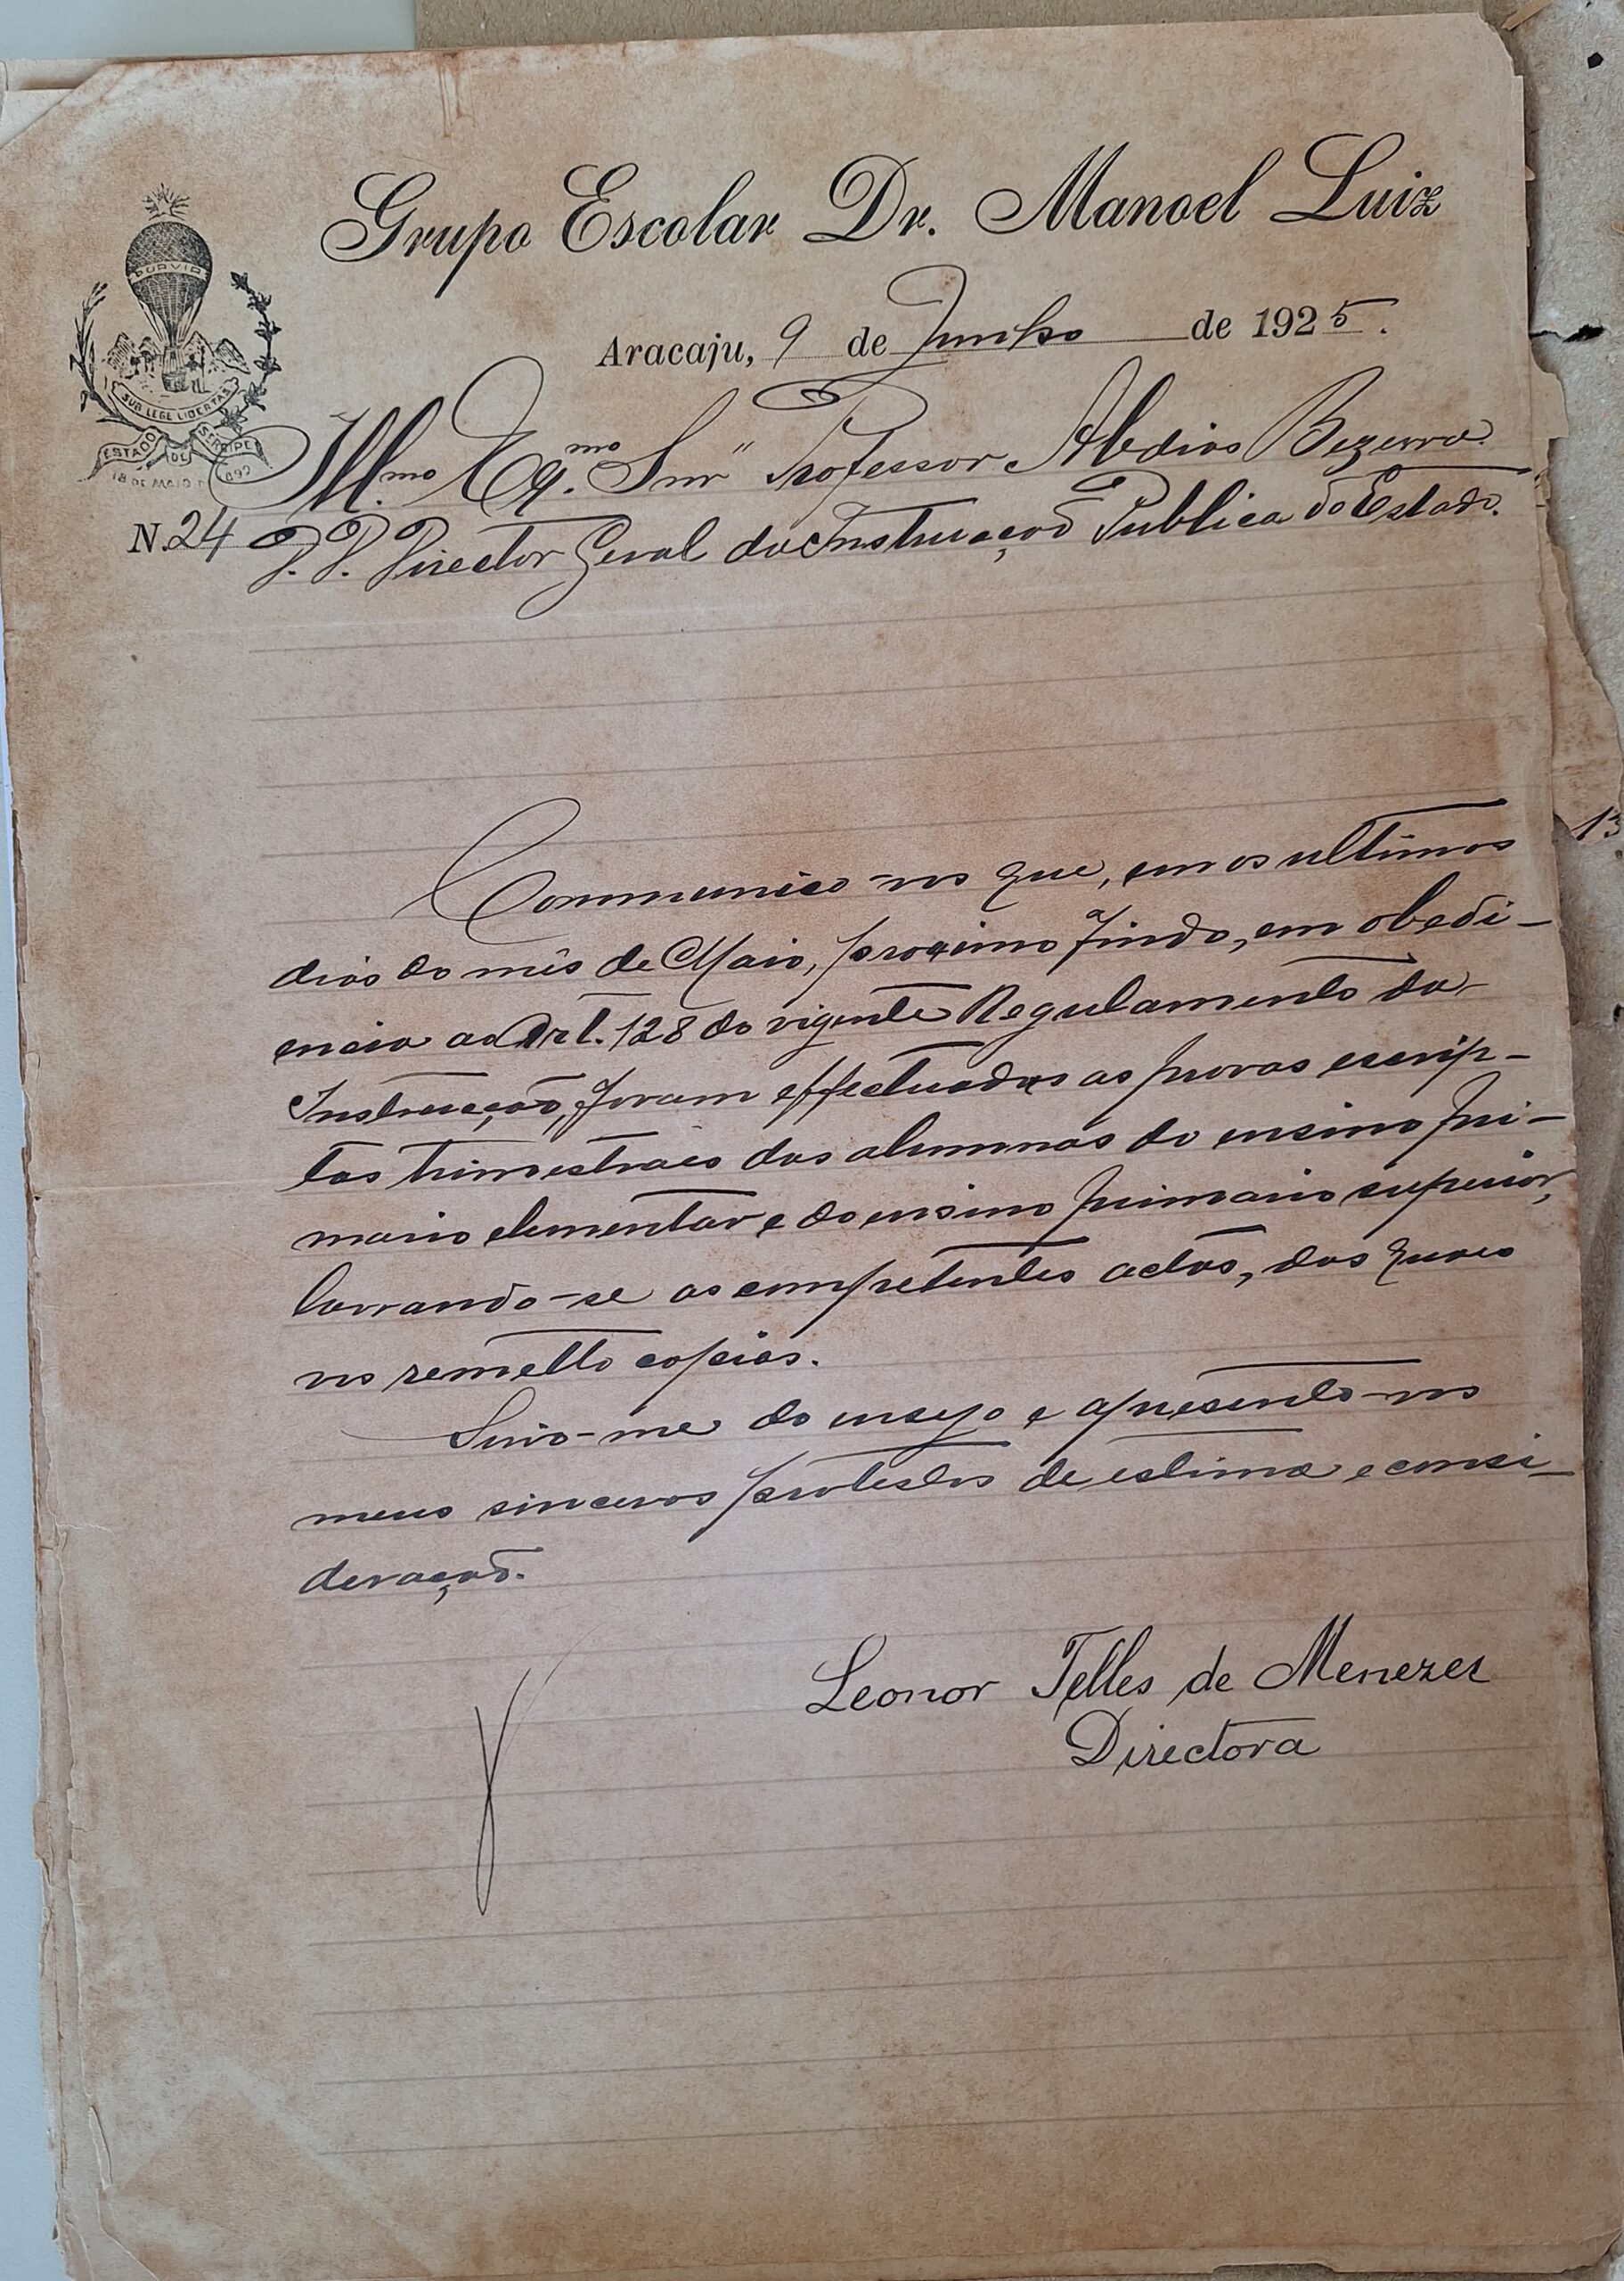 Grupo Escolar Dr. Manoel Luiz
Aracaju, 9 de Junho de 1925.
PORVIR
SUB LEGE LIBERTAS
ESTADO DE SERGIPE
18 DE MAIO DE 1892
Illmo Exmo. Snr Professor Abdias Bezerra.
N. 24 D. D. Director Geral da Instrucção Publica do Estado.
Communico-vos que, em os ultimos
dias do mês de Maio, proximo findo, em obedi-
encia ao Art. 128 do vigente Regulamento da
Instrucção, foram effectuadas as provas escrip-
tas trimestraes das alumnas do ensino pri-
mario elementar e do ensino primario superior,
lavrando-se as competentes actas, das quaes
vos remetto copias.
Sirvo-me do ensejo e apresento-vos
meus sinceros protestos de estima e consi-
deração.
Leonor Telles de Menezes
Directora
13